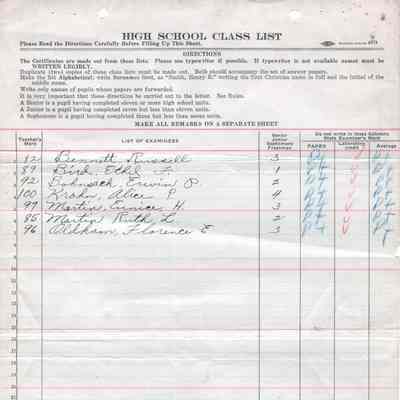 HIGH SCHOOL CLASS LIST
Please Read the Directions Carefully Before Filling Up This Sheet.
DIRECTIONS
The Certificates are made out from these lists. Please use typewriter if possible. If typewriter is not available names must be
WRITTEN LEGIBLY.
Duplicate (two) copies of these class lists must be made out. Both should accompany the set of answer papers.
Make the list Alphabetical; write Surnames first, as "Smith, Henry R." writing the first Christian name in full and the initial of the
middle name.
Write only names of pupils whose papers are forwarded.
It is very important that these directions be carried out to the letter. See Rules.
A Senior is a pupil having completed eleven or more high school units.
A Junior is a pupil having completed seven but less than eleven units.
A Sophomore is a pupil having completed three but less than seven units.
MAKE ALL REMARKS ON A SEPARATE SHEET
Teacher's Mark LIST OF EXAMINEES Senior Junior Sophomore Freshman Do not write in these Columns State Examiner's Mark
PAPER Laboratory Average
82 Bennett Russell 3
89 Bird, Ethel F. 1
92 Erwin P 2
100 Krohn, Alice P. 4
97 Martin, Eunice H. 3
85 Martin Ruth L. 2
96 Oldham, Florence E 3